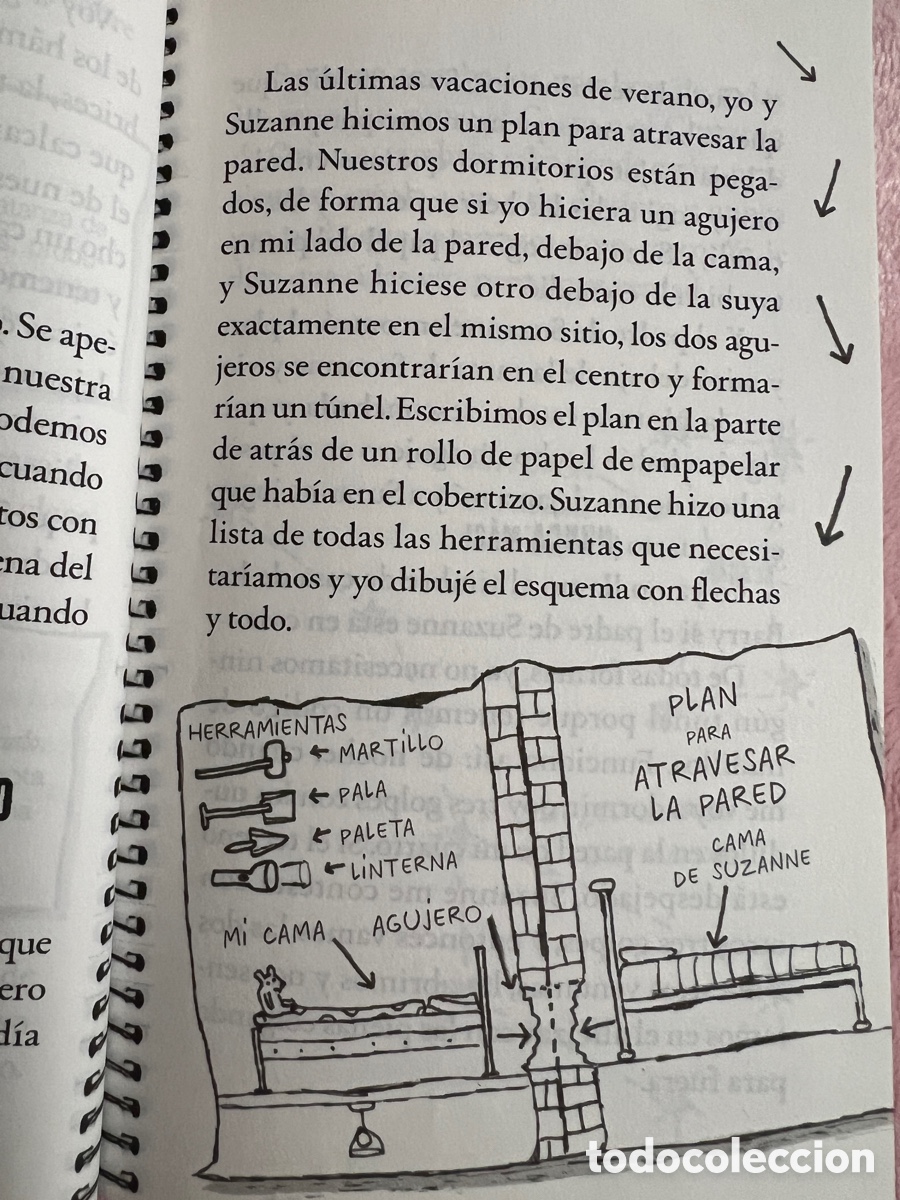 . Se ape-
nuestra
odemos
cuando
tos con
ena del
uando
que
ero
día
Las últimas vacaciones de verano, yo y
Suzanne hicimos un plan para atravesar la
pared. Nuestros dormitorios están pega-
dos, de forma que si yo hiciera un agujero
en mi lado de la pared, debajo de la cama,
y Suzanne hiciese otro debajo de la suya
exactamente en el mismo sitio, los dos agu-
jeros se encontrarían en el centro y forma-
rían un túnel. Escribimos el plan en la parte
de atrás de un rollo de papel de empapelar
que había en el cobertizo. Suzanne hizo una
lista de todas las herramientas que necesi-
taríamos y yo dibujé el esquema con flechas
y todo.
HERRAMIENTAS
MARTILLO
PALA
PALETA
LINTERNA
PLAN
PARA
ATRAVESAR
LA PARED
CAMA
DE SUZANNE
MI CAMA
AGUJERO
todocoleccion